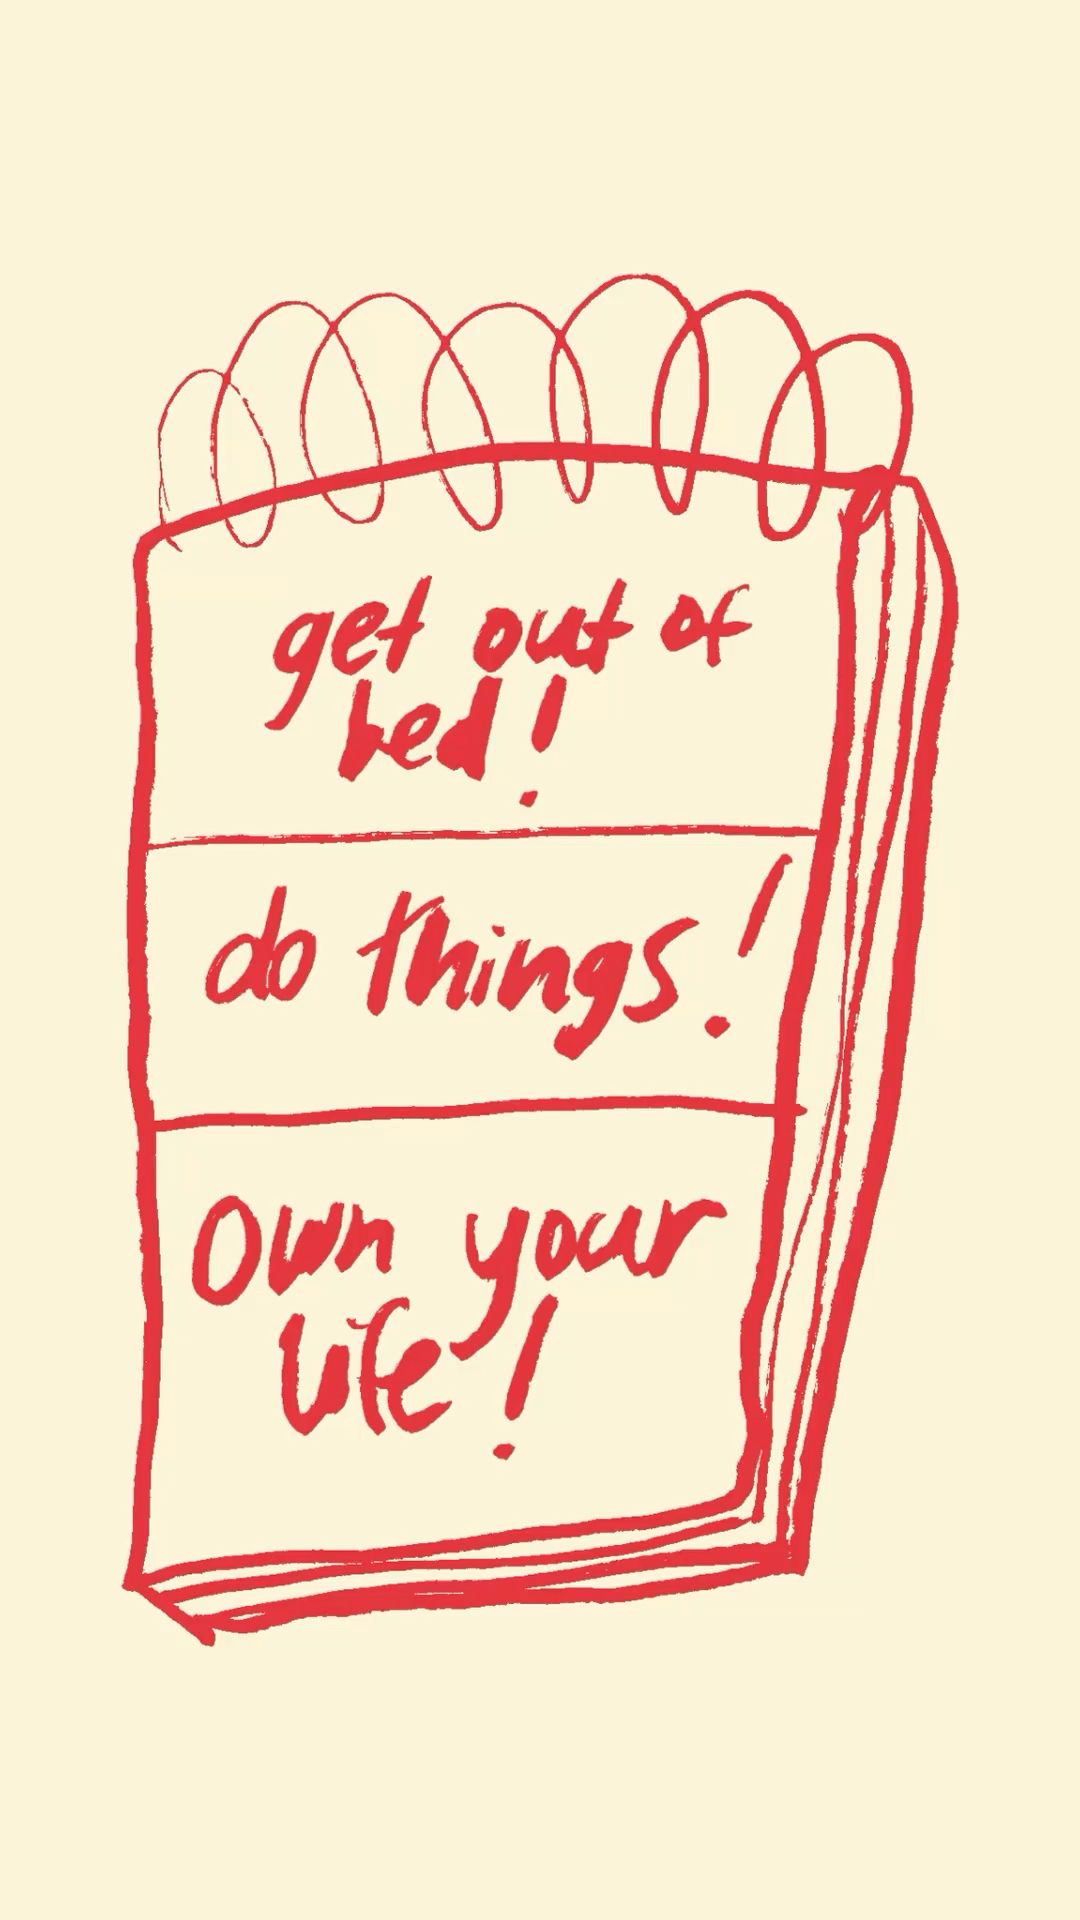 get out of
bed!
do things!
Own your
life!